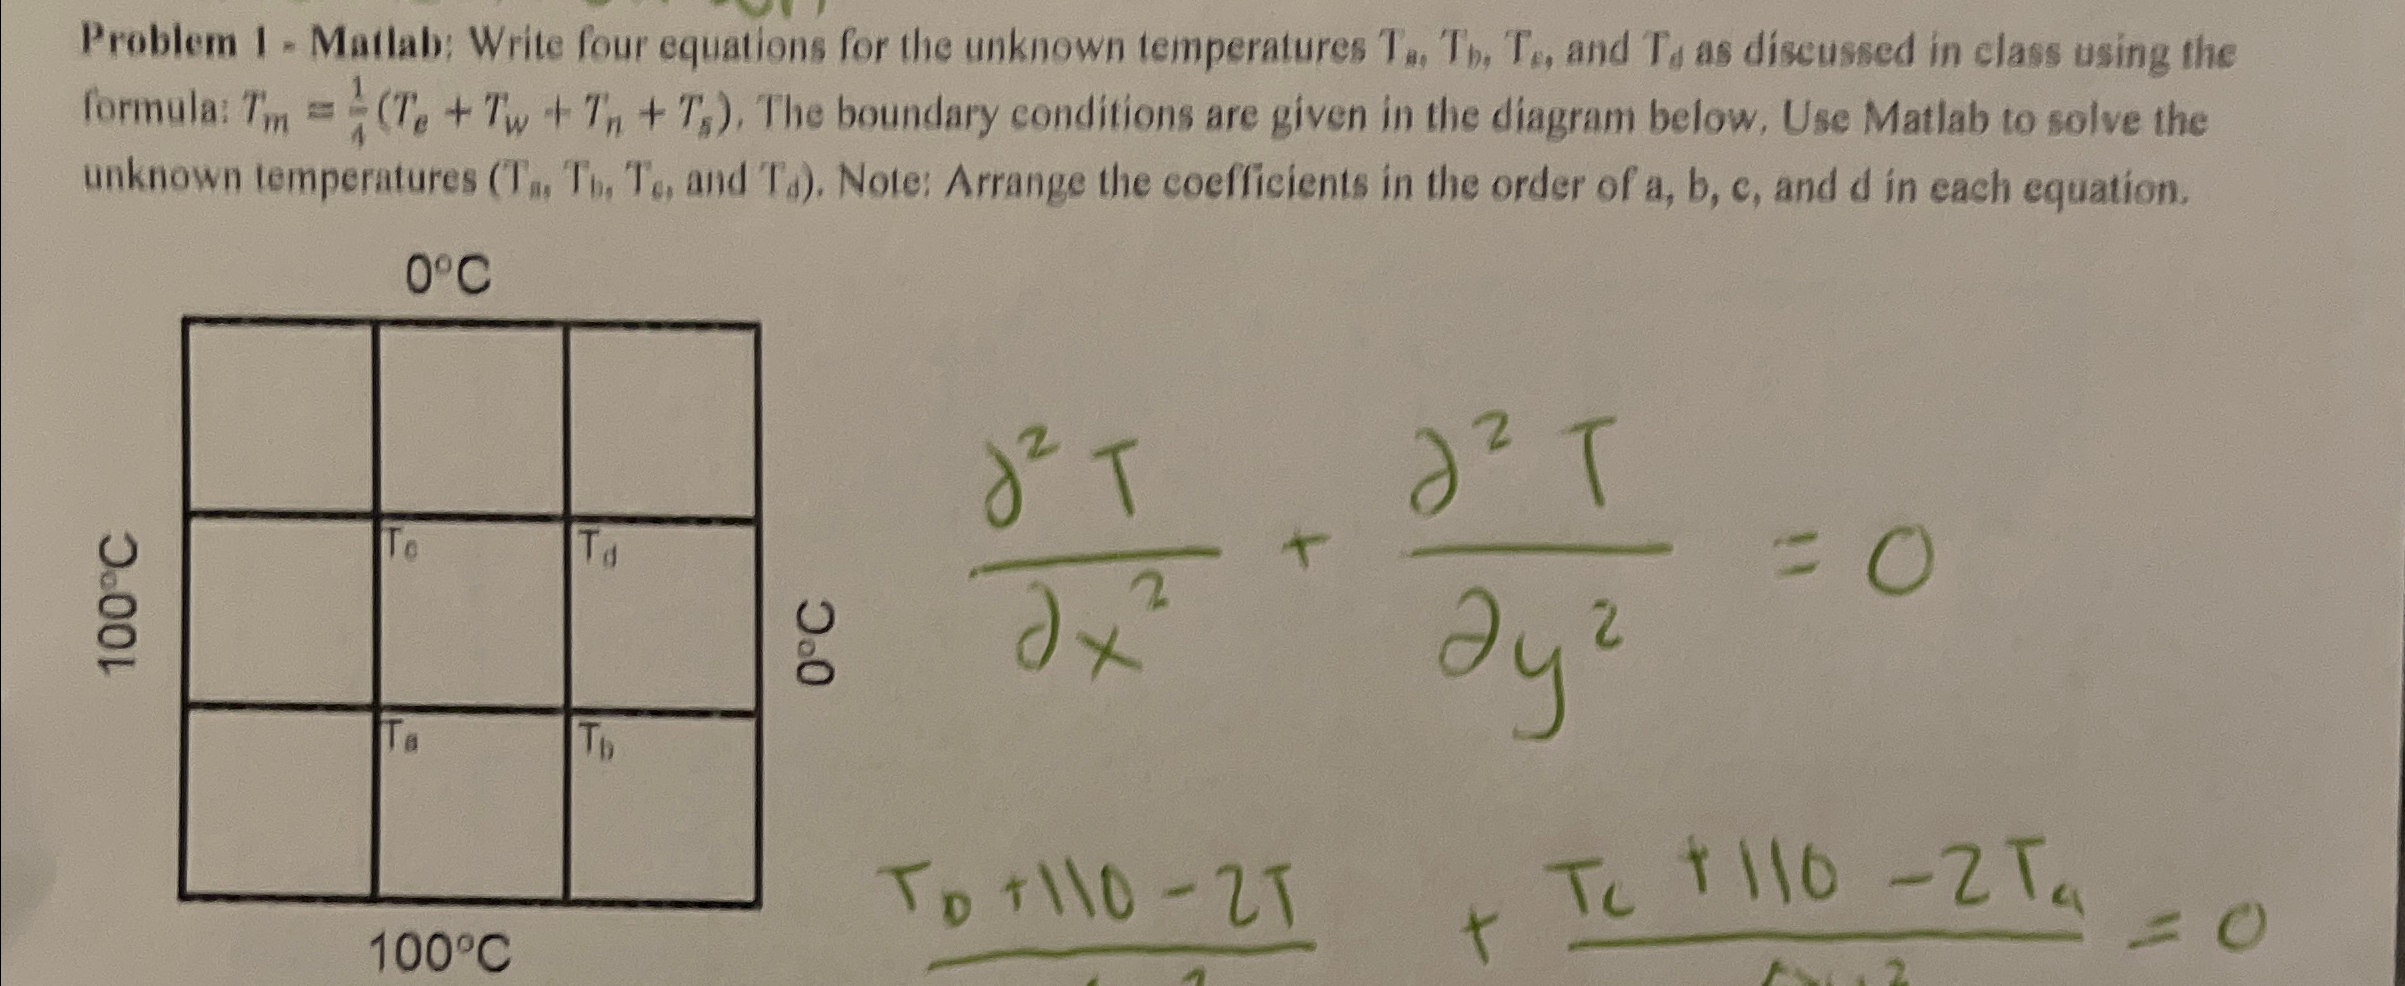 Problem 1 - Matlab: Write four equations for the unknown temperatures Ta, Tb, Tc, and Td as discussed in class using the
formula: Tm = 1/4 (Te + Tw + Tn + Ts). The boundary conditions are given in the diagram below. Use Matlab to solve the
unknown temperatures (Ta, Tb, Tc, and Td). Note: Arrange the coefficients in the order of a, b, c, and d in each equation.
0°C
100°C
Tc
Td
0°C
Ta
Tb
100°C
∂²T/∂x² + ∂²T/∂y² = 0
Tb + 110 - 2T + Tc + 110 - 2Ta = 0